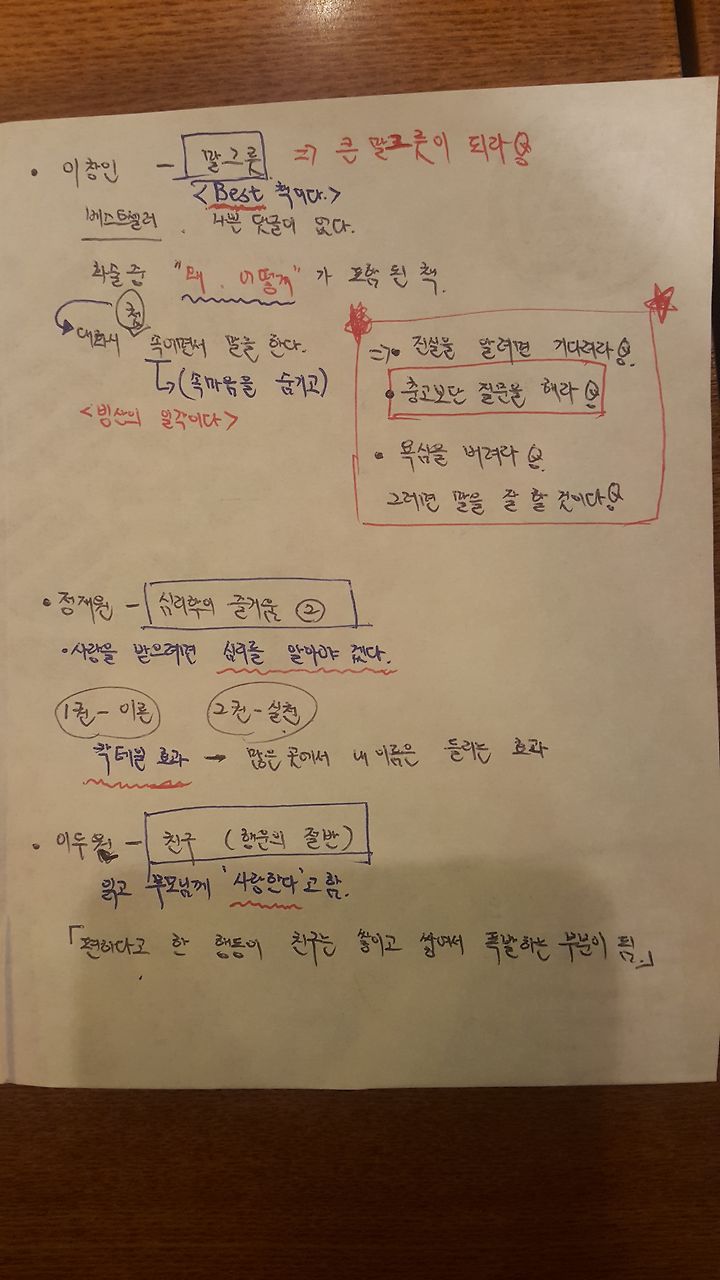 • 이창인 - 말그릇 => 큰 말그릇이 되라
<Best 책이다.>
베스트셀러 . 나쁜 댓글이 없다.
화술 중 "왜, 어떻게"가 포함 된 책.
대화시 속이면서 말을 한다.
(속마음을 숨기고)
<빙산의 일각이다>
=> • 진실을 알려면 기다려라
• 충고보단 질문을 해라
• 욕심을 버려라
그러면 말을 잘 할 것이다
• 정재원 - 심리학의 즐거움 ②
• 사랑을 받으려면 심리를 알아야 겠다.
1권 - 이론 2권 - 실천
칵테일 효과 → 많은 곳에서 내 이름은 들리는 효과
• 이두원 - 친구 (행운의 절반)
읽고 부모님께 '사랑한다'고 함.
「편하다고 한 행동이 친구는 쌓이고 쌓여서 폭발하는 부분이 됨.」